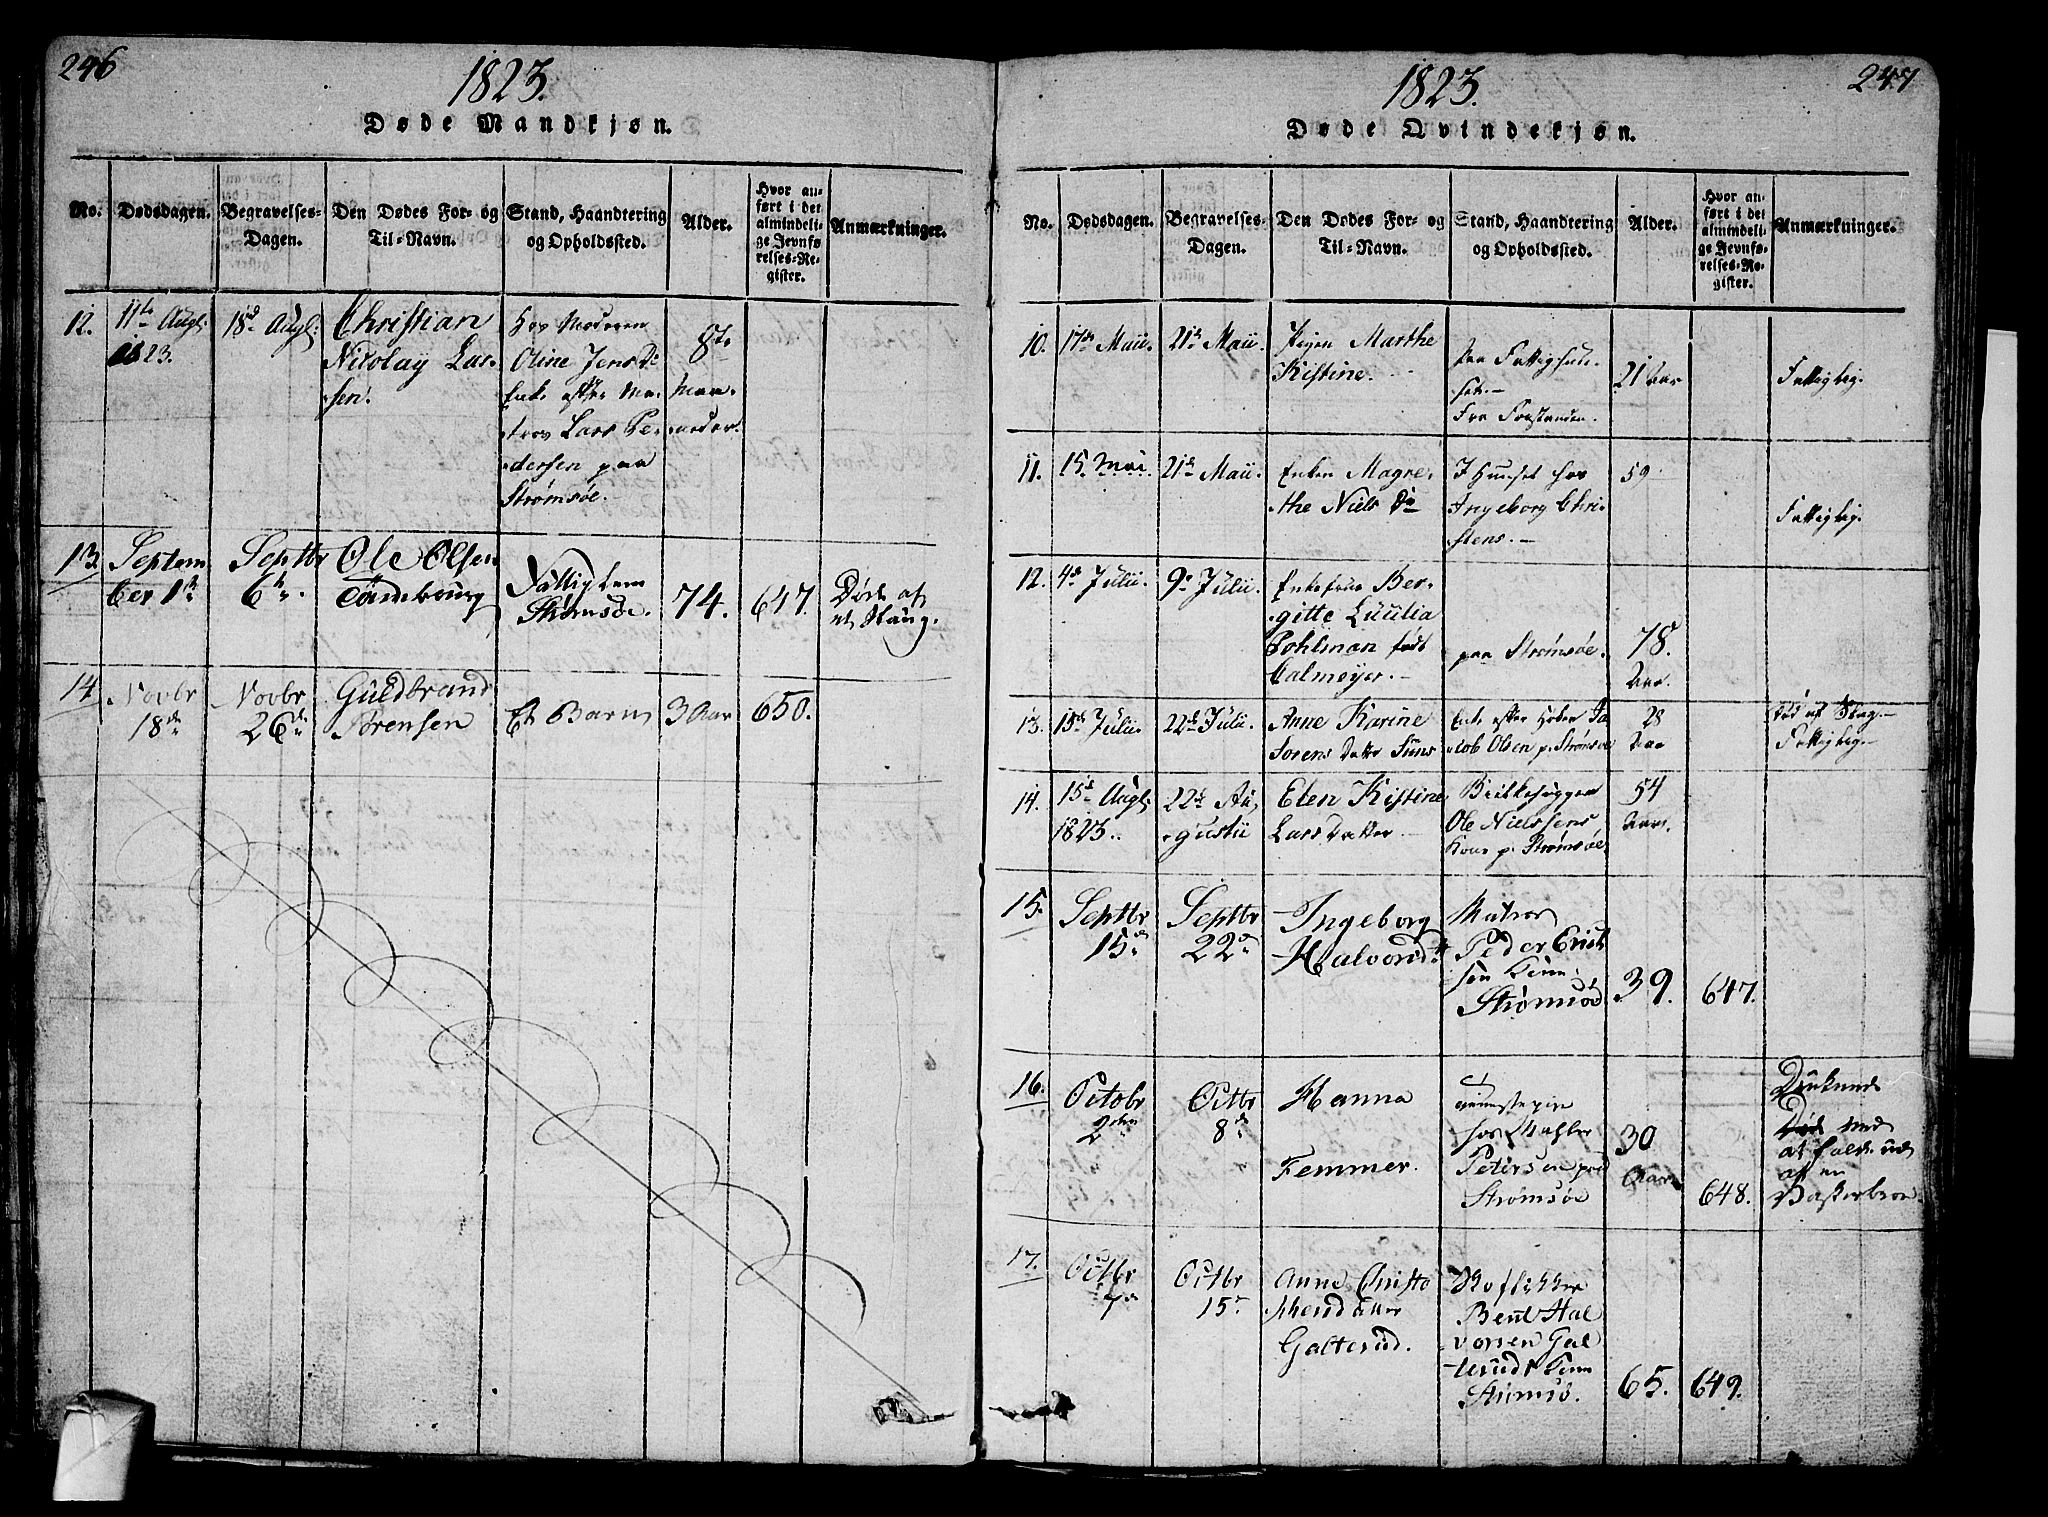 246
1823.
Døde Mandkjøn.
No.
Dødsdagen.
Begravelses-
Dagen.
Den Dødes For- og
Til-Navn.
Stand, Haandtering
og Opholdssted.
Alder.
Hvor an-
ført i det
almindeli-
ge Jevnfø
relses-Re-
gister.
Anmærkninger.
12.
11te Augt:
1823.
18de Augt:
Christian
Nicolay Lar-
sen.
Hos Moderen
Oline Jens Dr
Enke efter Ma-
tros Lars Pe-
dersen paa
Strømsøe.
8te
Maa-
neder.
13.
Septem
ber 1te
Septbr
6te
Ole Olsen
Fattig Lem
Strømsøe.
74.
647.
Døde af
14
Novbr
18de
Novbr
26de
Guldbrand
Sørensen
Et Barn
3 Aar
650.
1823.
247
Døde Qvindekjøn.
No.
Dødsdagen.
Begravelses-
Dagen.
Den Dødes For- og
Til-Navn.
Stand, Haandtering
og Opholdssted.
Alder.
Hvor an-
ført i det
almindeli-
ge Jevnfø-
relses-Re-
gister.
Anmærkninger.
10.
17de Maii.
21de Maii.
Pigen Marthe
Kistine.
paa Fattighuu-
set.
Fra Forstanderen.
21 Aar
Fattiglig.
11.
15. Mai.
21de Maii.
Enken Magre-
the Niels Dr
I Huuset hos
Ingeborg Chri-
stens.
59
Fattiglig.
12.
4de Julii.
9de Julii.
Enkefrue Ber-
gitte Lucilia
Pohlman født
Calmeyer.
paa Strømsøe.
78.
Aar.
13.
15de Julii.
22de Julii.
Anne Karine
Sorens Datter
Enke efter Ja-
cob Olsen p. Strømsøe
28
Aar
Død af Slag.
Fattiglig.
14.
15de Augt:
1823.
22de Au-
gustii
Elen Kistine
Lars Datter.
Ole Nielssens
Kone p. Strømsøe
54
Aar.
15.
Septbr
15de
Septbr
22de
Ingeborg
Halvorsd.
Matros
Peder Erich
sen
Strømsøe
39.
647.
16.
Octobr
2den
Octbr
8de
Hanna
Femmer.
Tienestepige
hos Mahler
Petersen paa
Strømsøe
30
Aar
648.
Druknede
ved
at falde ud
af en
17.
Octbr
7de
Octbr
15de
Anne Christo
phersdatter
Galterud.
Bent Hal
vorsen Gal
teruds
Strømsø.
65.
649.